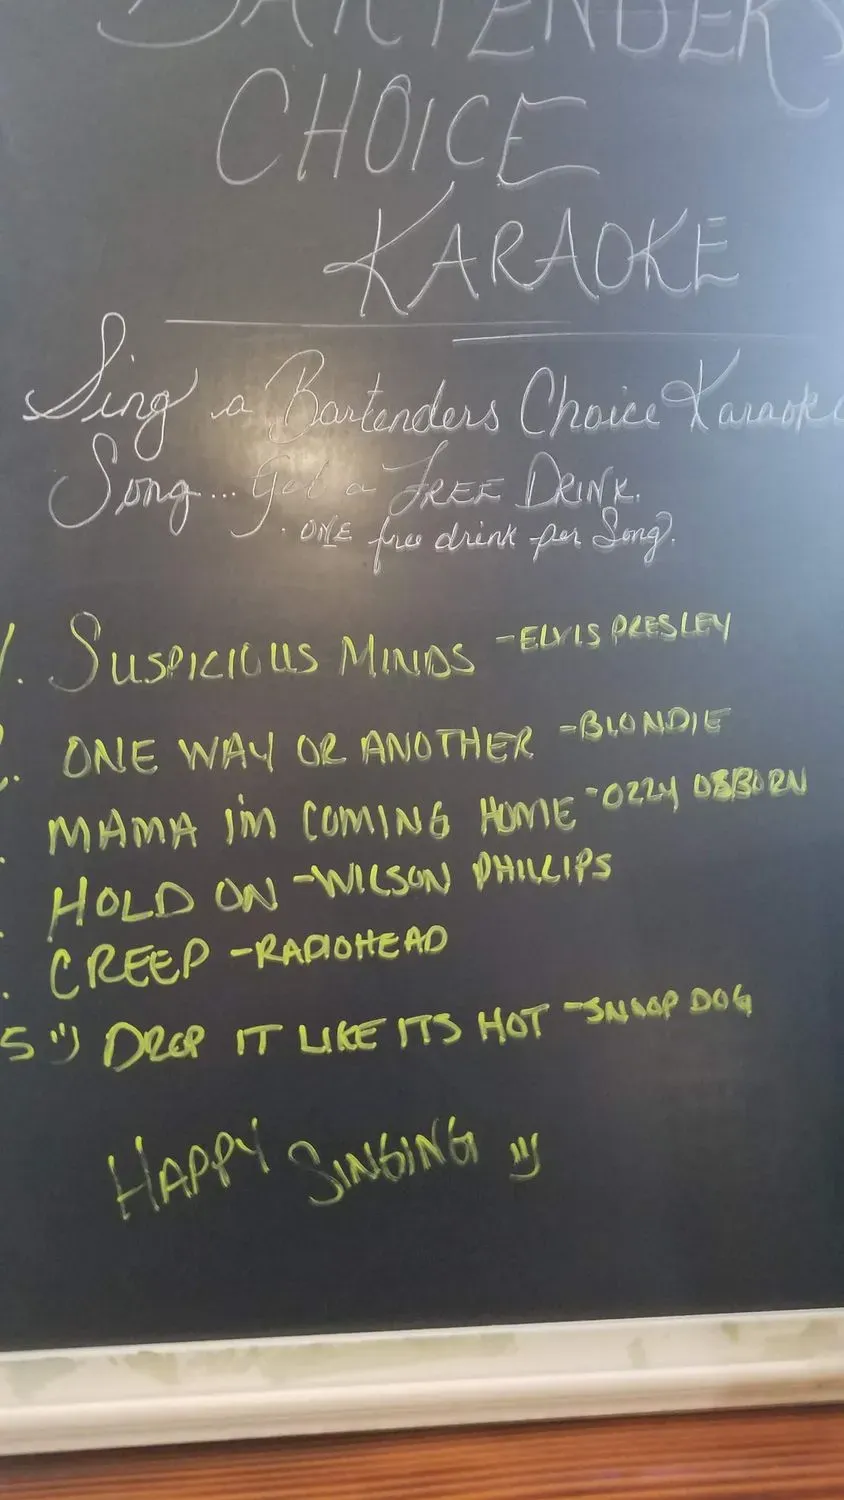 BARTENDERS
CHOICE
KARAOKE
Sing a Bartenders Choice Karaoke
Song... Get a FREE DRINK.
. ONE free drink per Song.
1. SUSPICIOUS MINDS -ELVIS PRESLEY
2. ONE WAY OR ANOTHER -BLONDIE
. MAMA I'M COMING HOME -OZZY OSBORN
. HOLD ON -WILSON PHILLIPS
. CREEP -RADIOHEAD
5 ") DROP IT LIKE ITS HOT -SNOOP DOG
HAPPY SINGING ")